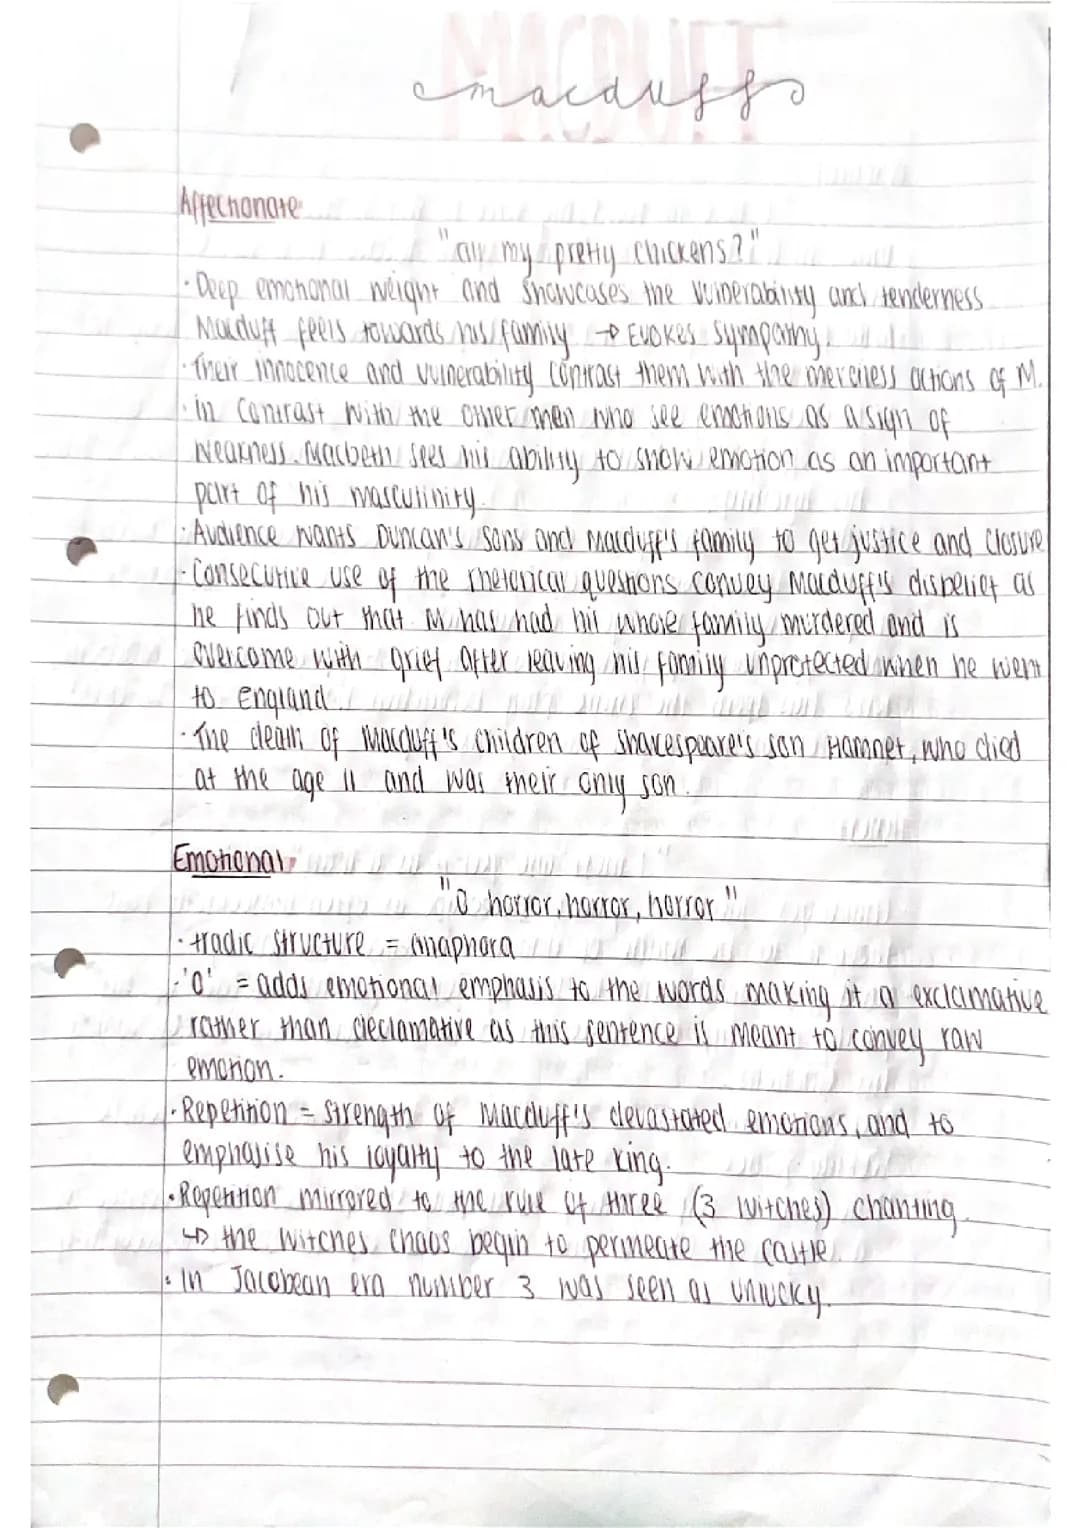 MACDUFF
macduff
Affectionate
"all my pretty chickens?"
· Deep emotional weight and showcases the vulnerability and tenderness
Macduff feels towards his family → Evokes sympathy.
· Their innocence and vulnerability contrast them with the merciless actions of M.
· in contrast with the other men who see emotions as a sign of
weakness. Macbeth sees his ability to show emotion as an important
part of his masculinity.
· Audience wants Duncan's sons and Macduff's family to get justice and closure
· Consecutive use of the rhetorical questions convey Macduff's disbelief as
he finds out that M has had his whole family murdered and is
overcome with grief after leaving his family unprotected when he went
to England.
· The death of Macduff's children of Shakespeare's son Hamnet, who died
at the age 11 and was their only son.
Emotional
"O horror, horror, horror"
· tradic structure = anaphora
· 'O' = adds emotional emphasis to the words making it a exclamative
rather than declamative as this sentence is meant to convey raw
emotion.
· Repetition = strength of Macduff's devastated emotions, and to
emphasise his loyalty to the late king.
· Repetition mirrored to the rule of three (3 witches) chanting.
↳ the witches chaos begin to permeate the castle.
· In Jacobean era number 3 was seen as unlucky.